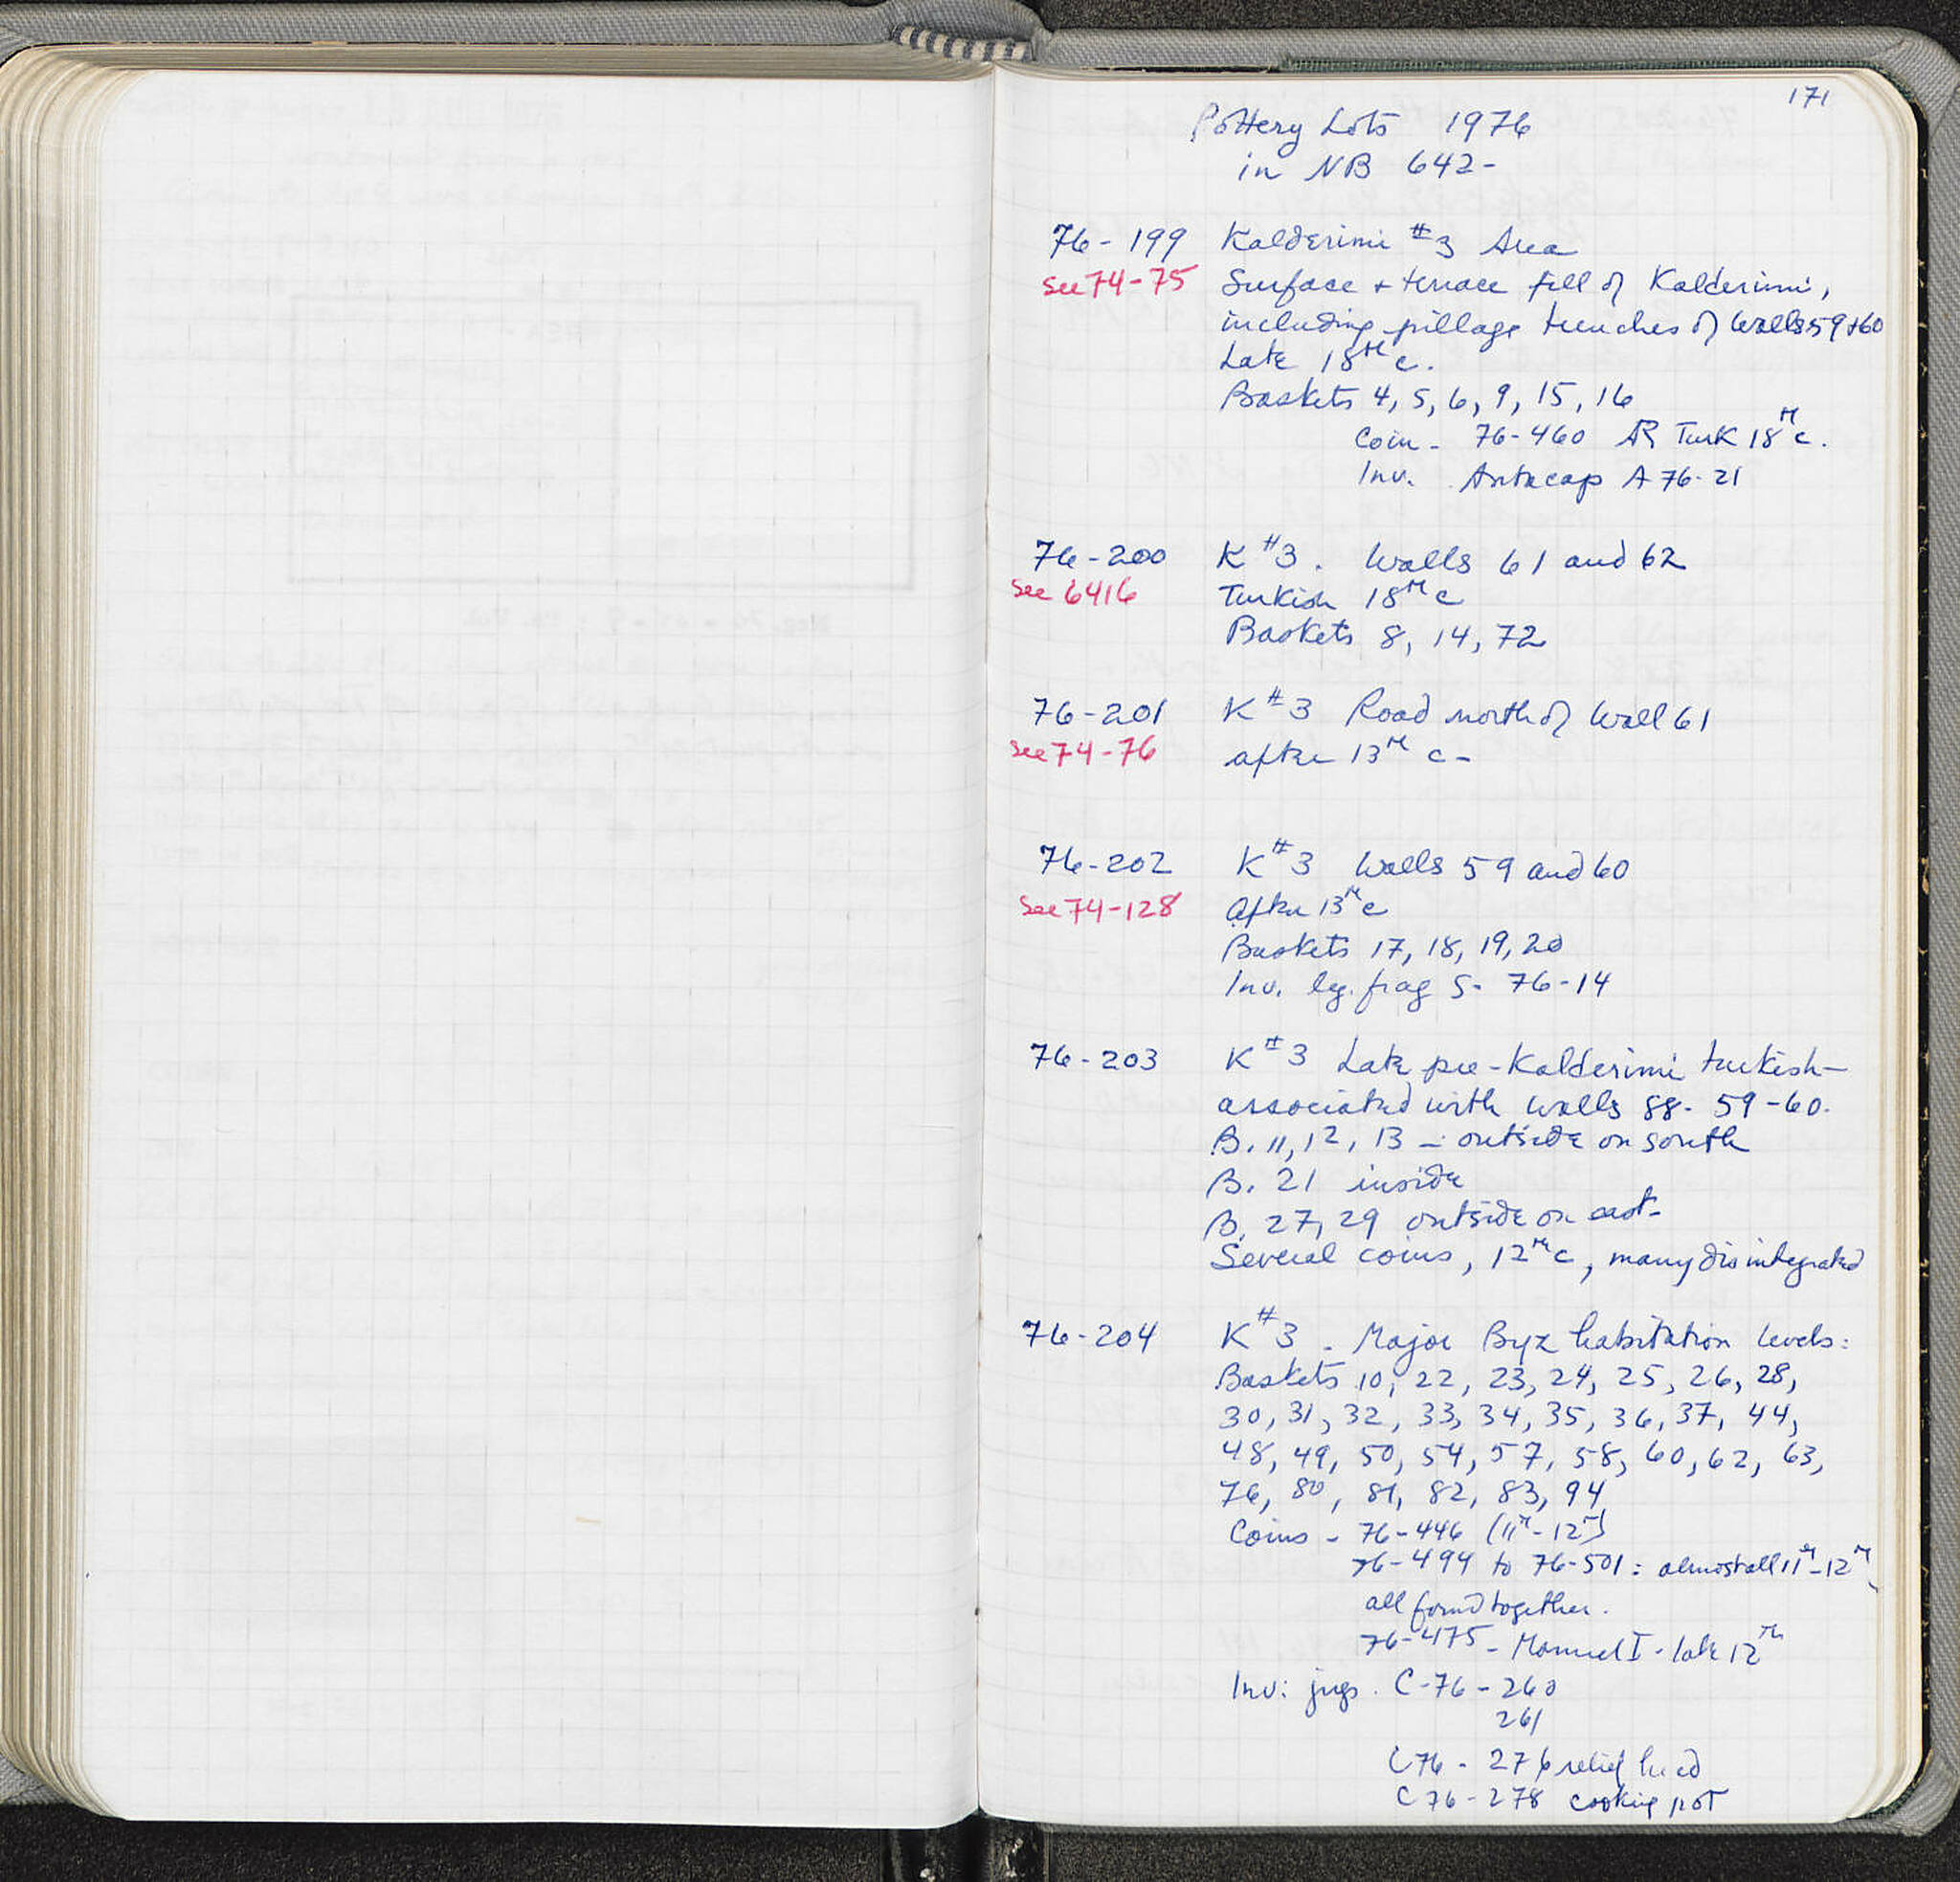 171
Pottery Lots 1976
in NB 642-
76-199 Kalderimi #3 Area
see 74-75 Surface + terrace fill of Kalderimi,
including pillage trenches of Walls 59+60
Late 18th c.
Baskets 4, 5, 6, 9, 15, 16
Coin - 76-460 AR Turk 18th c.
Inv. Antacap A 76-21
76-200 K #3. Walls 61 and 62
see 6416 Turkish 18th c
Baskets 8, 14, 72
76-201 K #3 Road north of Wall 61
see 74-76 after 13th c-
76-202 K #3 Walls 59 and 60
see 74-128 After 13th c
Baskets 17, 18, 19, 20
Inv. leg. frag S- 76-14
76-203 K #3 Late pre-Kalderimi turkish-
associated with walls 88- 59-60.
B. 11, 12, 13 - outside on south
B. 21 inside
B. 27, 29 outside on east-
Several coins, 12th c, many disintegrated
76-204 K #3 - Major Byz habitation levels:
Baskets 10, 22, 23, 24, 25, 26, 28,
30, 31, 32, 33, 34, 35, 36, 37, 44,
48, 49, 50, 54, 57, 58, 60, 62, 63,
76, 80, 81, 82, 83, 94
Coins - 76-446 (11th-12th)
76-494 to 76-501: almost all 11th-12th,
all found together.
76-475 - Manuel I - late 12th
Inv: jugs. C-76-260
261
C76-276 relief head
C76-278 cooking pot